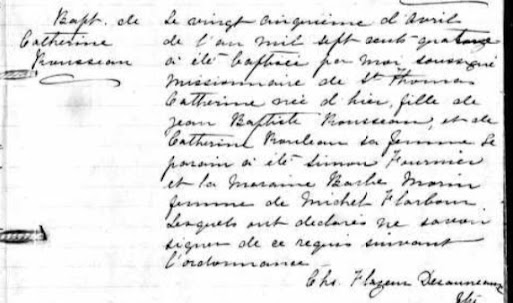 Bapt. de
Catherine
Rousseau
Le vingt cinquième d'Avril
de l'an mil sept cent quatorze
a été baptisée par moi soussigné
Missionnaire de St Thomas
Catherine née d'hier, fille de
Jean Baptiste Rousseau, et de
Catherine Rouleau sa femme Le
parain a été Simon Fournier
et la Maraine Barbe Morin
femme de Michel
Lesquels ont declarés ne savoir
signer de ce requis suivant
l'ordonnance
Chs.